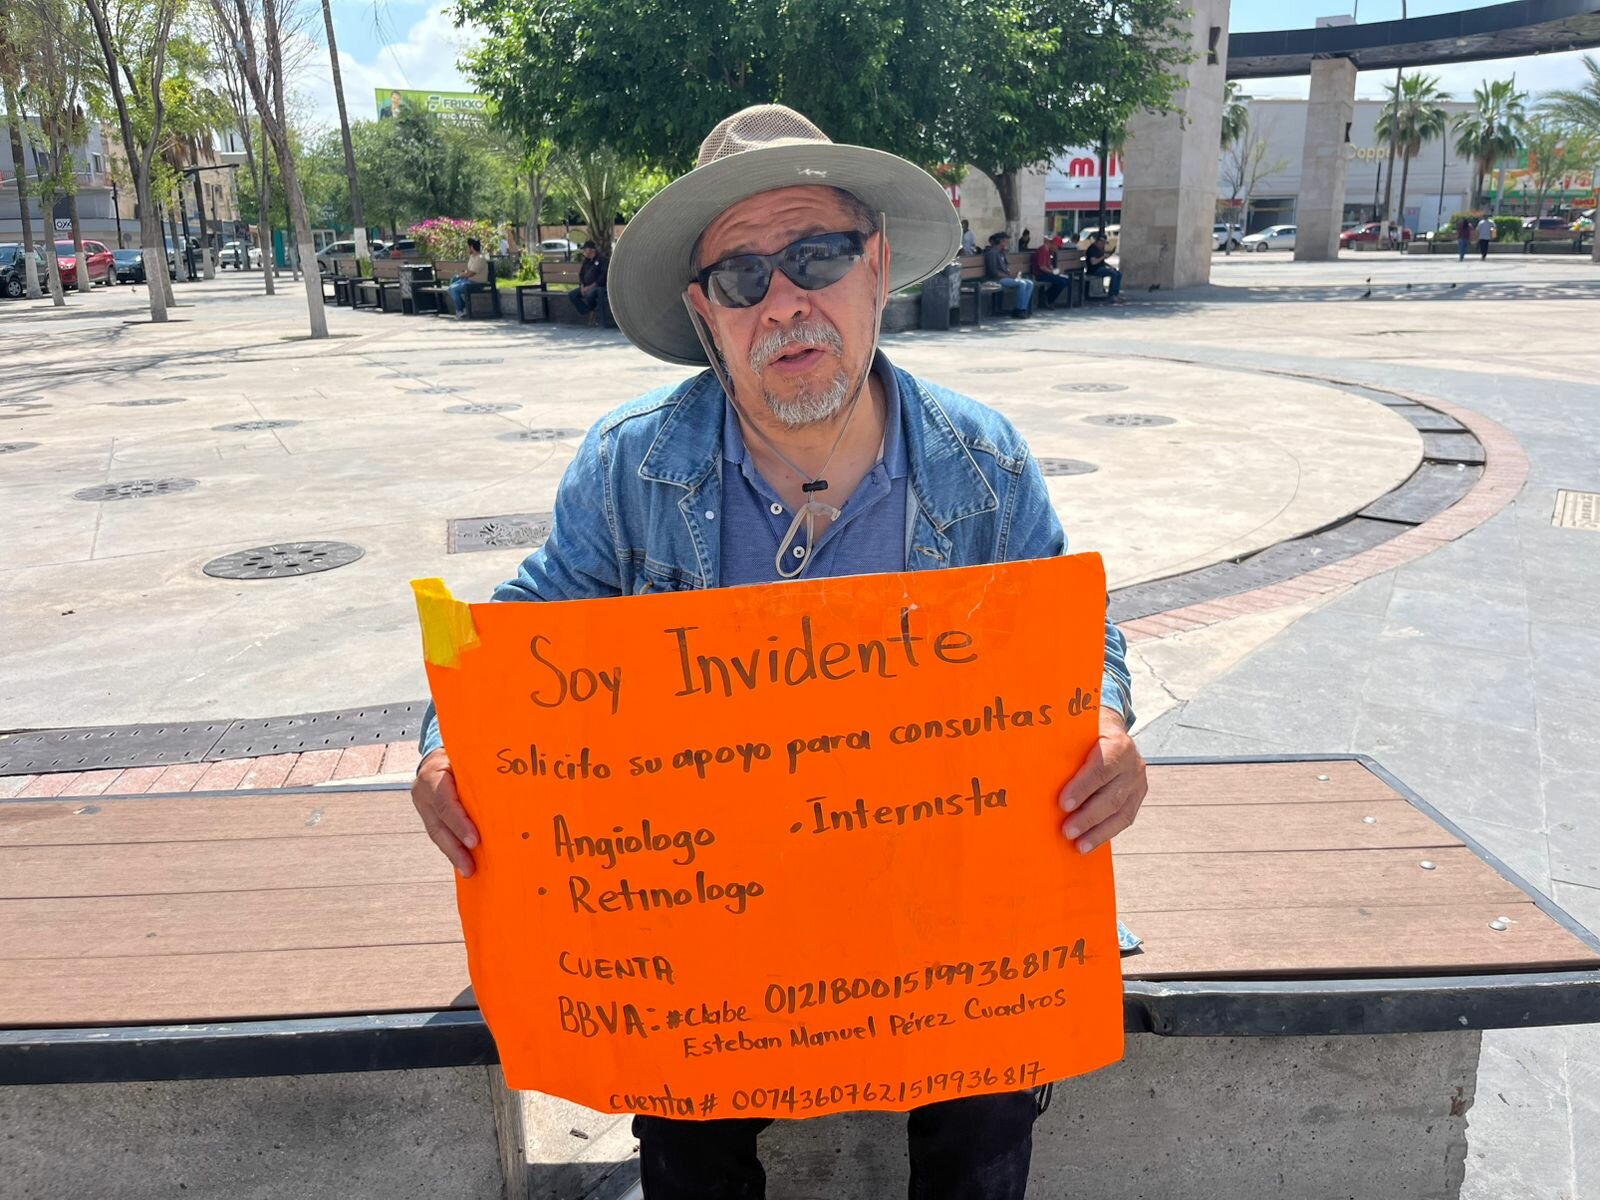 FRIKKO
Soy Invidente
Solicito su apoyo para consultas de:
• Angiologo
• Internista
• Retinologo
CUENTA
BBVA: #Clabe 012180015199368174
Esteban Manuel Pérez Cuadros
cuenta # 00743607621519936817